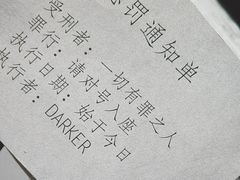 罚通知单
受刑者：一切有罪之人
罪行：请对号入座
执行日期：始于今日
执行者：DARKER